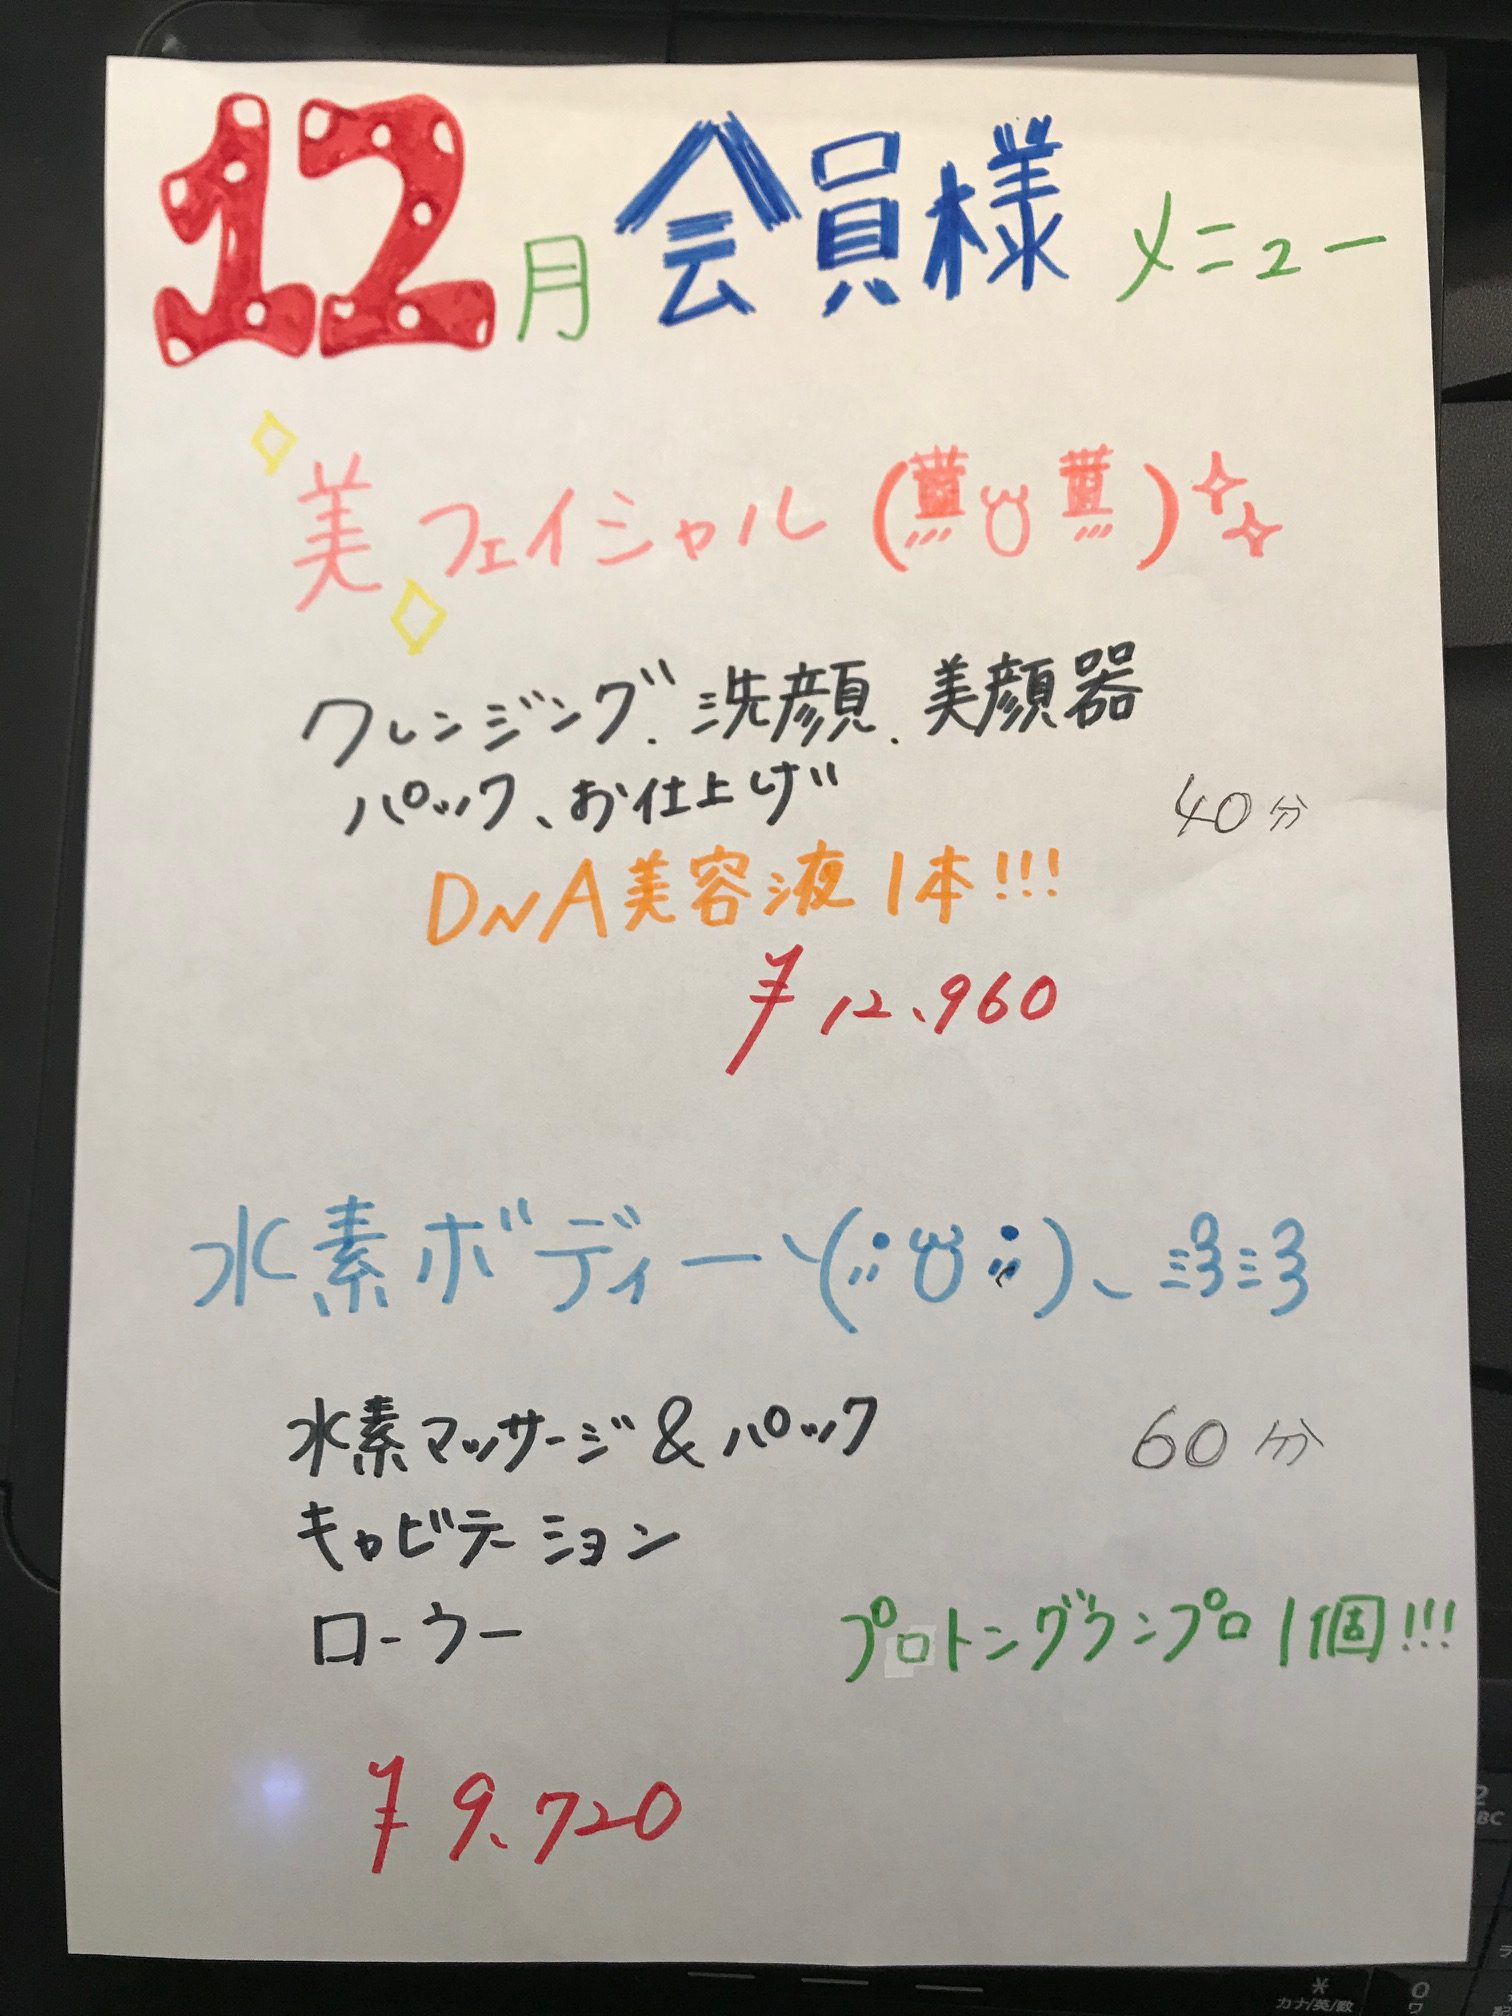 12月 会員様 メニュー
美フェイシャル
クレンジング、洗顔、美顔器
パック、お仕上げ
40分
DNA美容液1本!!!
¥12,960
水素ボディー
水素マッサージ&パック
60分
キャビテーション
ローラー
プロトングランプロ1個!!!
¥9,720
2
BC
*
カナ/英/数
0
ワ